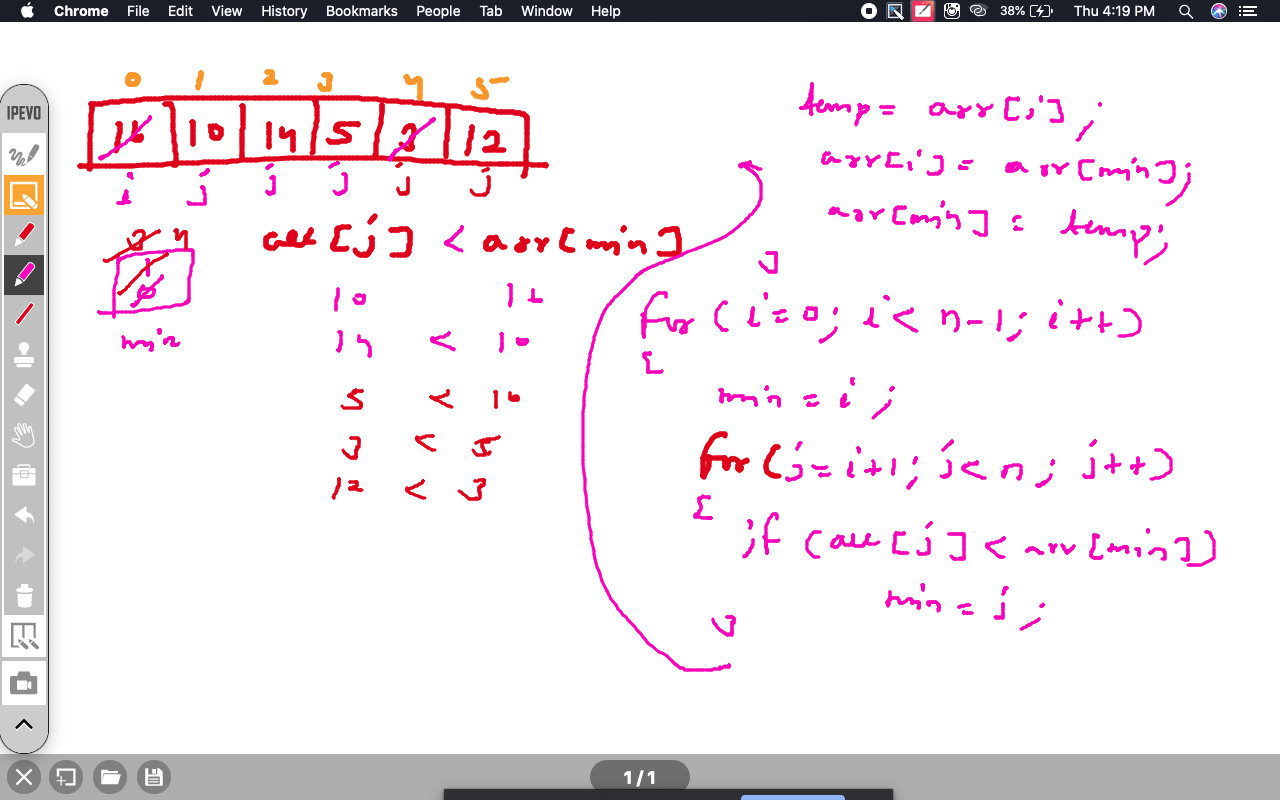 Chrome File Edit View History Bookmarks People Tab Window Help 38% Thu 4:19 PM
IPEVO
0 1 2 3 4 5
16 10 14 5 3 12
i j j j j j
3 4
1
0
min
arr[j] < arr[min]
10 16
14 < 10
5 < 10
3 < 5
12 < 3
temp = arr[i];
arr[i] = arr[min];
arr[min] = temp;
}
for (i=0; i< n-1; i++)
{
min = i;
for (j=i+1; j<n; j++)
{
if (arr[j] < arr[min])
min = j;
}
1/1